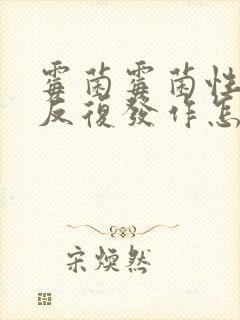 霉菌霉菌性
反復發作怎
宋煥然